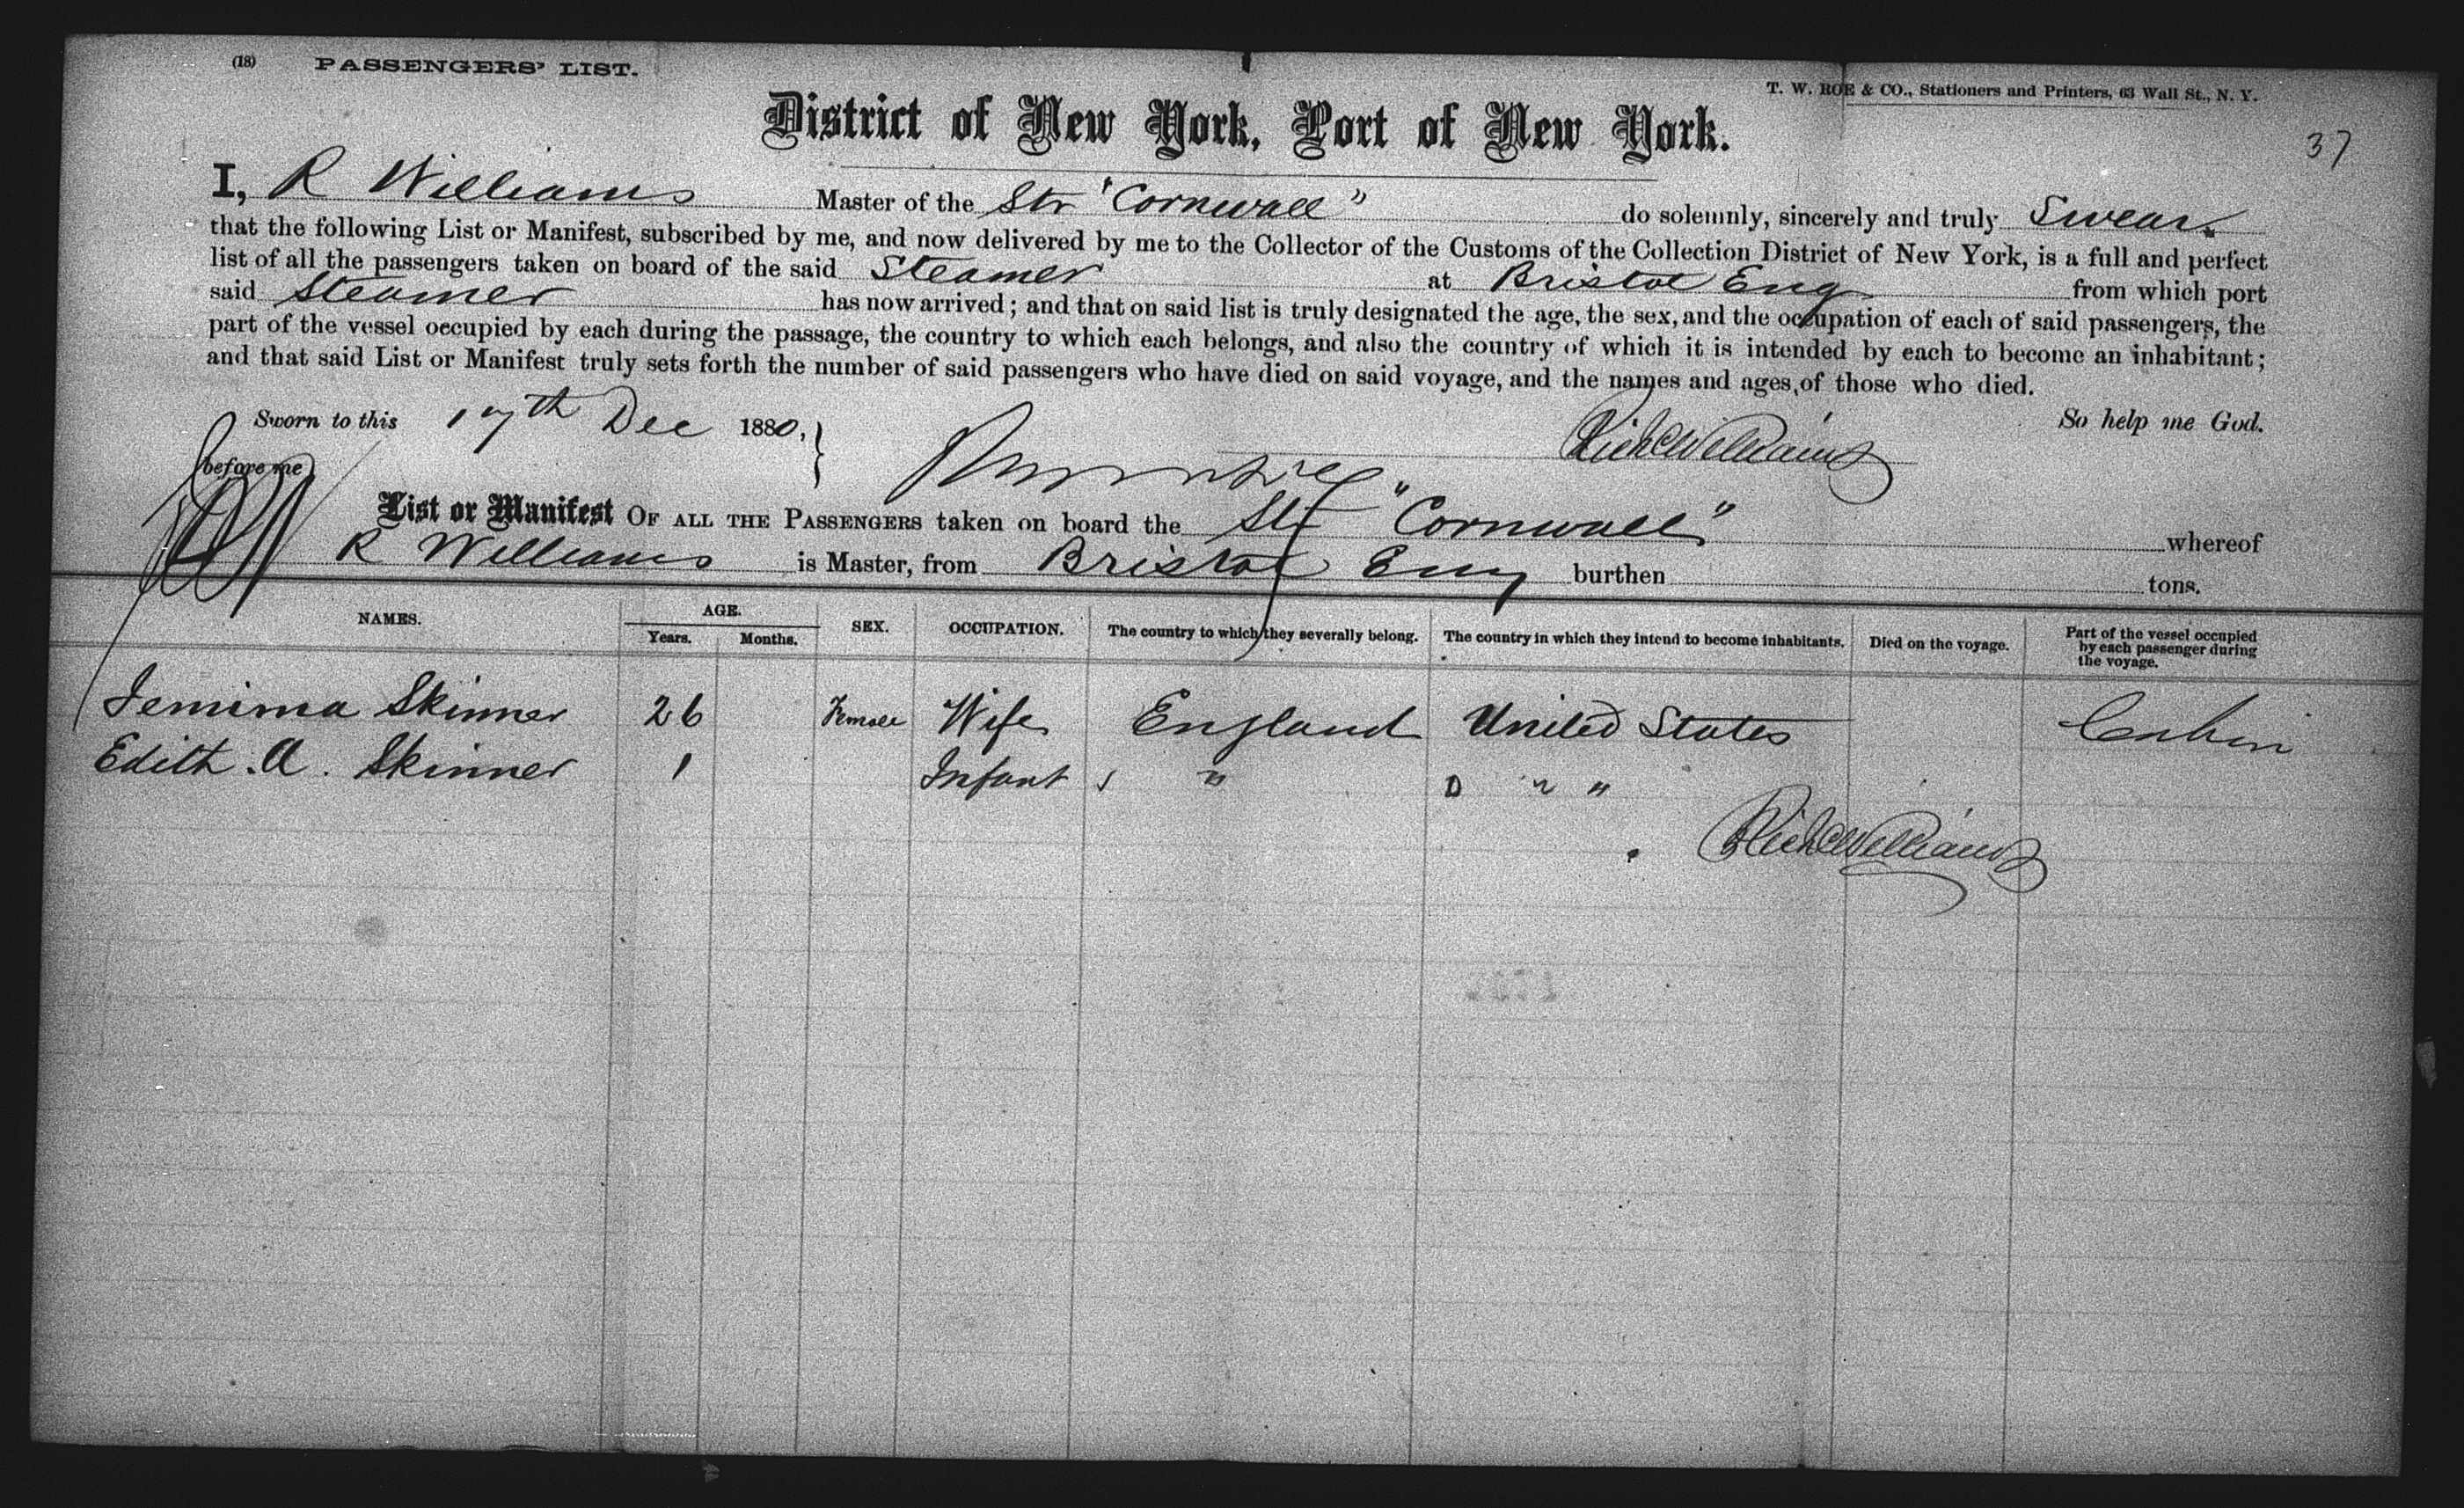 (18) PASSENGERS' LIST.
T. W. ROE & CO., Stationers and Printers, 63 Wall St., N. Y.
District of New York, Port of New York.
37
I, R Williams Master of the Str "Cornwall" do solemnly, sincerely and truly Swear
that the following List or Manifest, subscribed by me, and now delivered by me to the Collector of the Customs of the Collection District of New York, is a full and perfect
list of all the passengers taken on board of the said Steamer at Bristol Eng from which port
said Steamer has now arrived; and that on said list is truly designated the age, the sex, and the occupation of each of said passengers, the
part of the vessel occupied by each during the passage, the country to which each belongs, and also the country of which it is intended by each to become an inhabitant;
and that said List or Manifest truly sets forth the number of said passengers who have died on said voyage, and the names and ages, of those who died.
Sworn to this 17th Dec 1880, So help me God.
before me Rich Williams
List or Manifest OF ALL THE PASSENGERS taken on board the Str "Cornwall" whereof
R Williams is Master, from Bristol Eng burthen tons.
NAMES. AGE. Years. Months. SEX. OCCUPATION. The country to which they severally belong. The country in which they intend to become inhabitants. Died on the voyage. Part of the vessel occupied by each passenger during the voyage.
Jemima Skinner 26 Female Wife England United States Cabin
Edith . A . Skinner 1 Infant " " "
Rich Williams